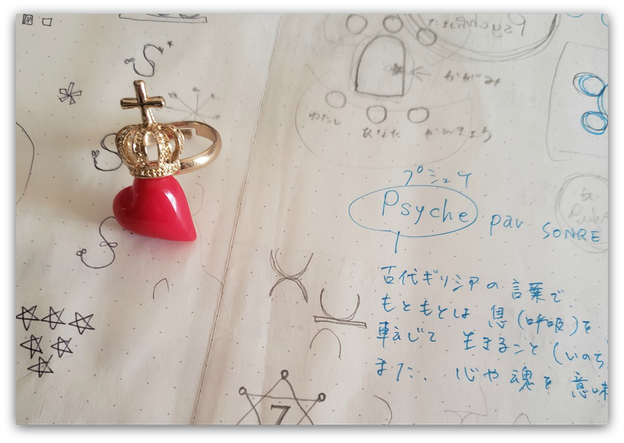 かがみ
わたし
あなた
かんきょう
プシュケ
Psyche par SONRE
古代ギリシアの言葉で、
もともとは 息(呼吸)を
転じて 生きること(いのち
また、心や魂を意味
7